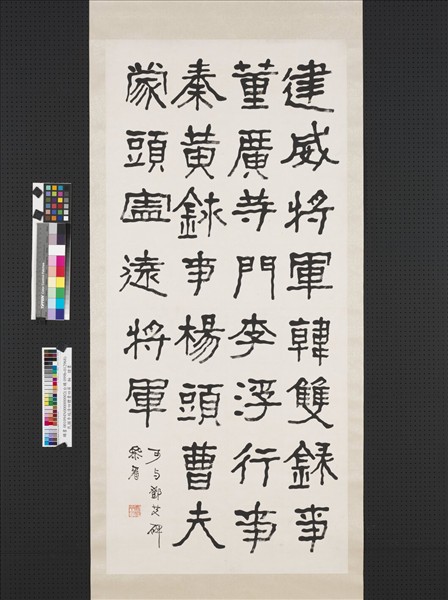 建威將軍韓雙錄事
董廣寺門李浮行事
秦黃錄事楊頭曹夫
蒙頭盧遠將軍
可与鄧艾碑
參看